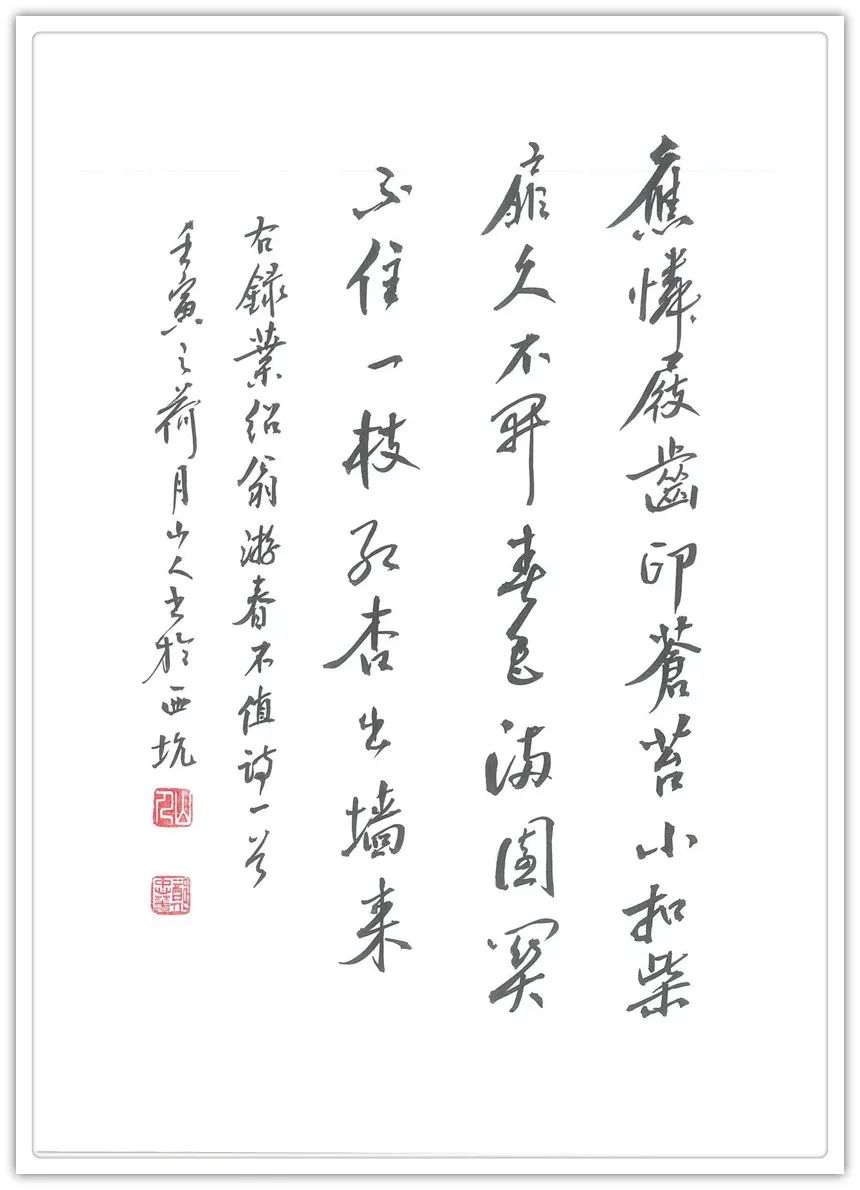 應憐屐齒印蒼苔小扣柴
扉久不開春色滿園關
不住一枝紅杏出墻来
右録葉紹翁游春不值詩一首
壬寅之荷月山人书於西坑
山人